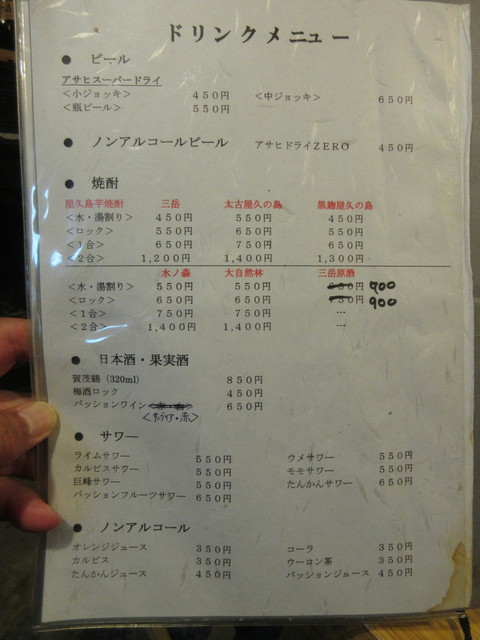 ドリンクメニュー
● ビール
アサヒスーパードライ
＜小ジョッキ＞ ４５０円 ＜中ジョッキ＞ ６５０円
＜瓶ビール＞ ５５０円
● ノンアルコールビール アサヒドライＺＥＲＯ ４５０円
● 焼酎
屋久島芋焼酎 三岳 太古屋久の島 黒麹屋久の島
＜水・湯割り＞ ４５０円 ５５０円 ４５０円
＜ロック＞ ５５０円 ６５０円 ５５０円
＜１合＞ ６５０円 ７５０円 ６５０円
＜２合＞ １,２００円 １,４００円 １,３００円
水ノ森 大自然林 三岳原酒
＜水・湯割り＞ ５５０円 ５５０円 ６５０円 900
＜ロック＞ ６５０円 ６５０円 ７５０円 900
＜１合＞ ７５０円 ７５０円 …
＜２合＞ １,４００円 １,４００円 …
● 日本酒・果実酒
賀茂鶴（320ml） ８５０円
梅酒ロック ４５０円
パッションワイン ６５０円
● サワー
ライムサワー ５５０円 ウメサワー ５５０円
カルピスサワー ５５０円 モモサワー ５５０円
巨峰サワー ５５０円 たんかんサワー ６５０円
パッションフルーツサワー ６５０円
● ノンアルコール
オレンジジュース ３５０円 コーラ ３５０円
カルピス ３５０円 ウーロン茶 ３５０円
たんかんジュース ４５０円 パッションジュース ４５０円